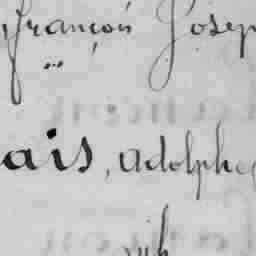 françois Josep
ais, adolphe